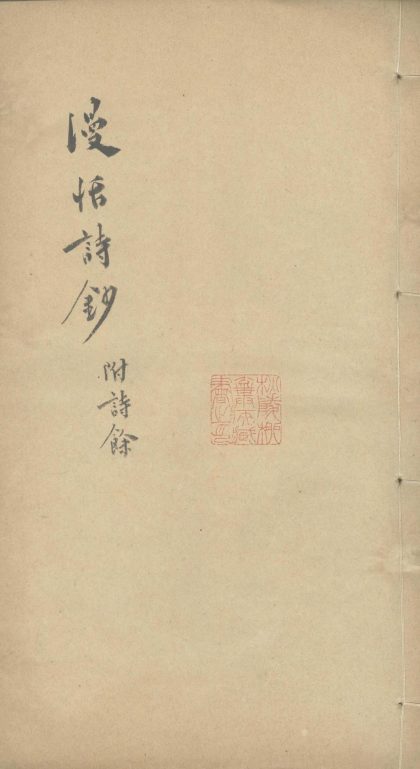 漫恬詩鈔
附詩餘